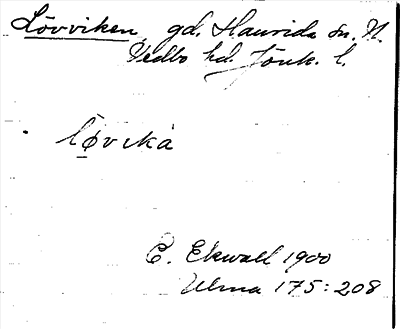 Lövviken, gd. Haurida sn. N.
Vedbo hd. Jönk. l.
lø̄vika
C. Ekwall 1900
Ulma 175:208